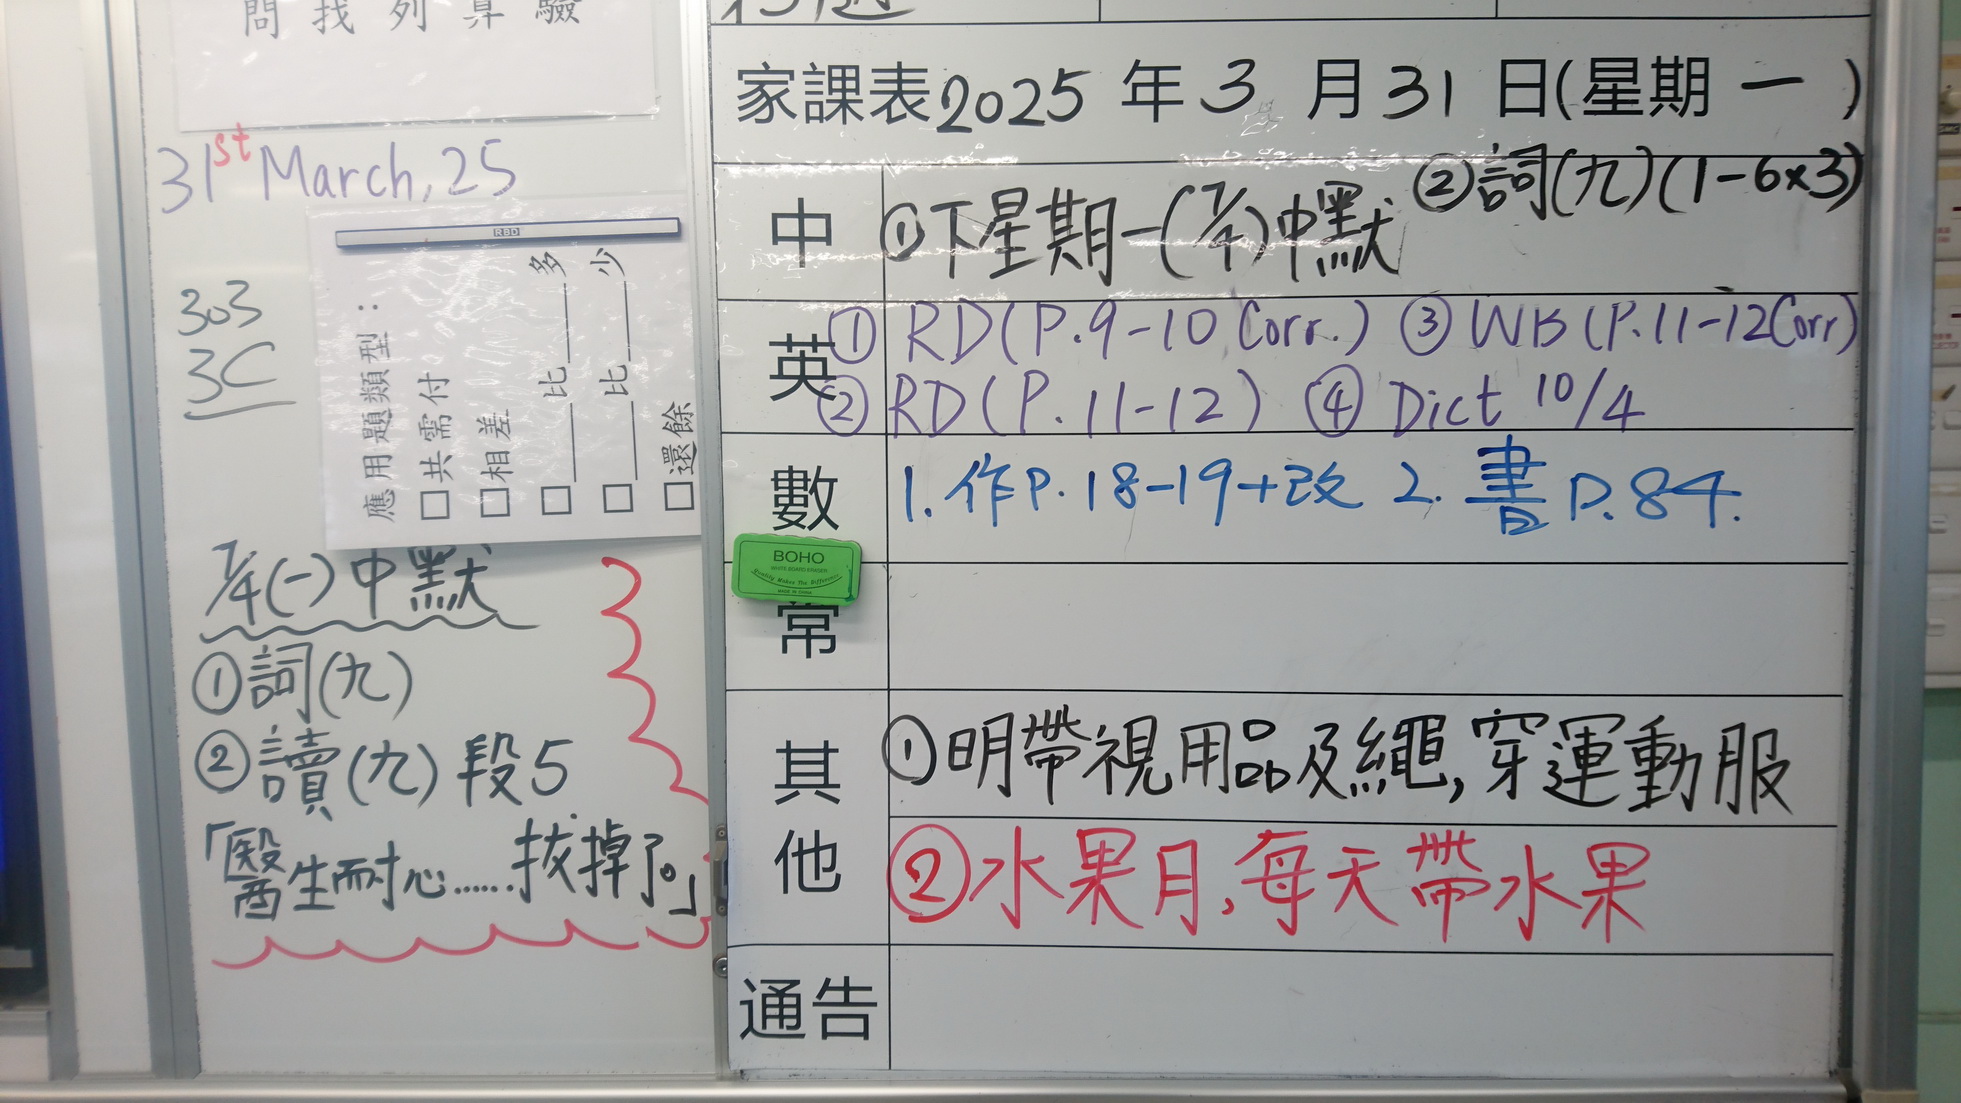 問找列算驗
31st March, 25
303
3C
RBD
應用題類型：
□共需付
□相差
□____比____多
□____比____少
□還餘
7/4(一)中默
①詞(九)
②讀(九)段5
「醫生耐心……拔掉了。」
家課表2025年3月31日(星期一)
中
①下星期一(7/4)中默 ②詞(九)(1-6x3)
英
① RD(P.9-10 Corr.) ③ WB(P.11-12Corr)
② RD(P.11-12) ④ Dict 10/4
數
1. 作P.18-19+改 2. 書P.84.
BOHO
WHITE BOARD ERASER
Quality Makes The Difference
MADE IN CHINA
常
其他
①明帶視用品及繩,穿運動服
②水果月,每天帶水果
通告